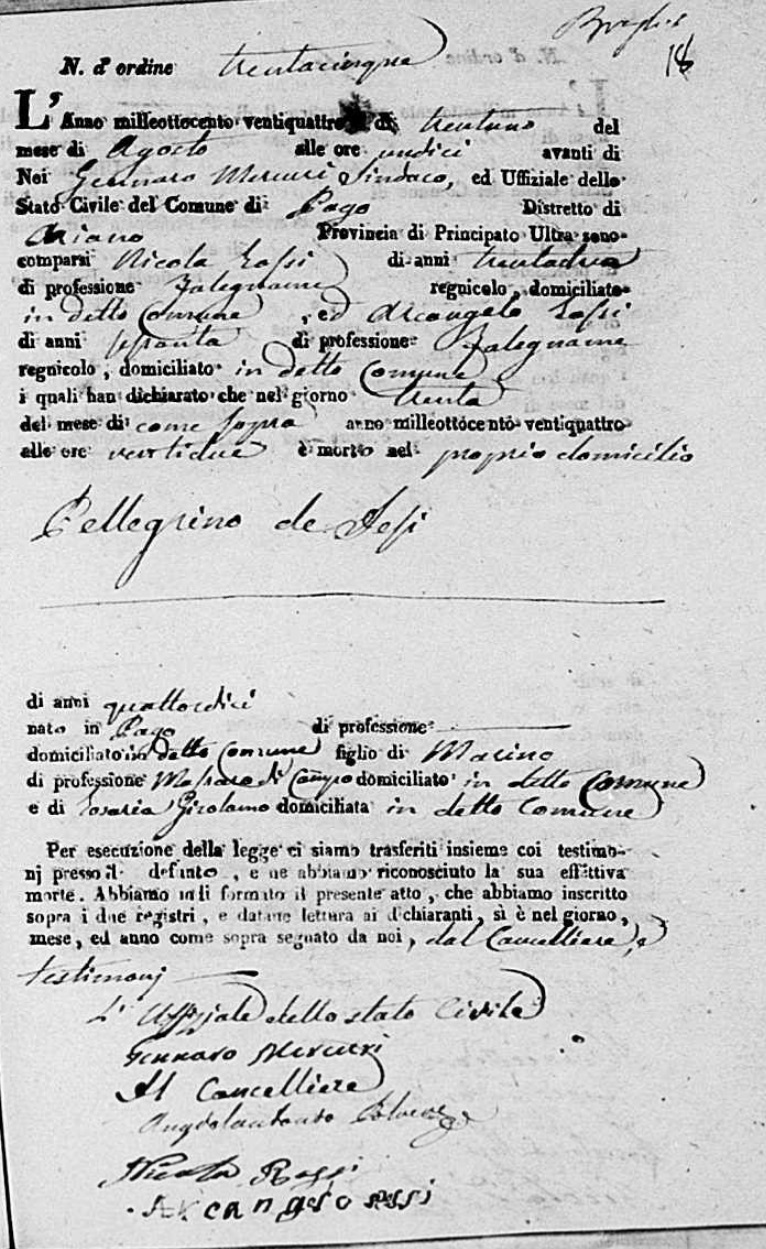 18
N. d' ordine trentacinque
L' Anno milleottocento ventiquattro di trentuno del
mese di Agosto alle ore undici avanti di
Noi Gennaro Mercuri Sindaco, ed Uffiziale dello
Stato Civile del Comune di Pago Distretto di
Ariano Provincia di Principato Ultra sono
comparsi Nicola Rossi di anni trentadue
di professione Falegname regnicolo, domiciliato
in detto Comune, ed Arcangelo Rossi
di anni sessanta di professione Falegname
regnicolo, domiciliato in detto Comune
i quali han dichiarato che nel giorno trenta
del mese di come sopra anno milleottocento ventiquattro
alle ore ventidue è morto nel proprio domicilio
Pellegrino de
di anni quattordici
nato in Pago di professione
domiciliato in detto Comune figlio di Marino
di professione Massaro di Campo domiciliato in detto Comune
e di Rosaria Girolamo domiciliata in detto Comune
Per esecuzione della legge ci siamo trasferiti insieme coi testimo-
nj presso il defunto, e ne abbiamo riconosciuto la sua effettiva
morte. Abbiamo indi formato il presente atto, che abbiamo inscritto
sopra i due registri, e datane lettura ai dichiaranti, si è nel giorno,
mese, ed anno come sopra segnato da noi, dal Cancelliere, e
testimonj
L' Uffiziale dello stato Civile
Gennaro Mercuri
Il Cancelliere
Angelantonio
Nicola Rossi
Arcangelo Rossi